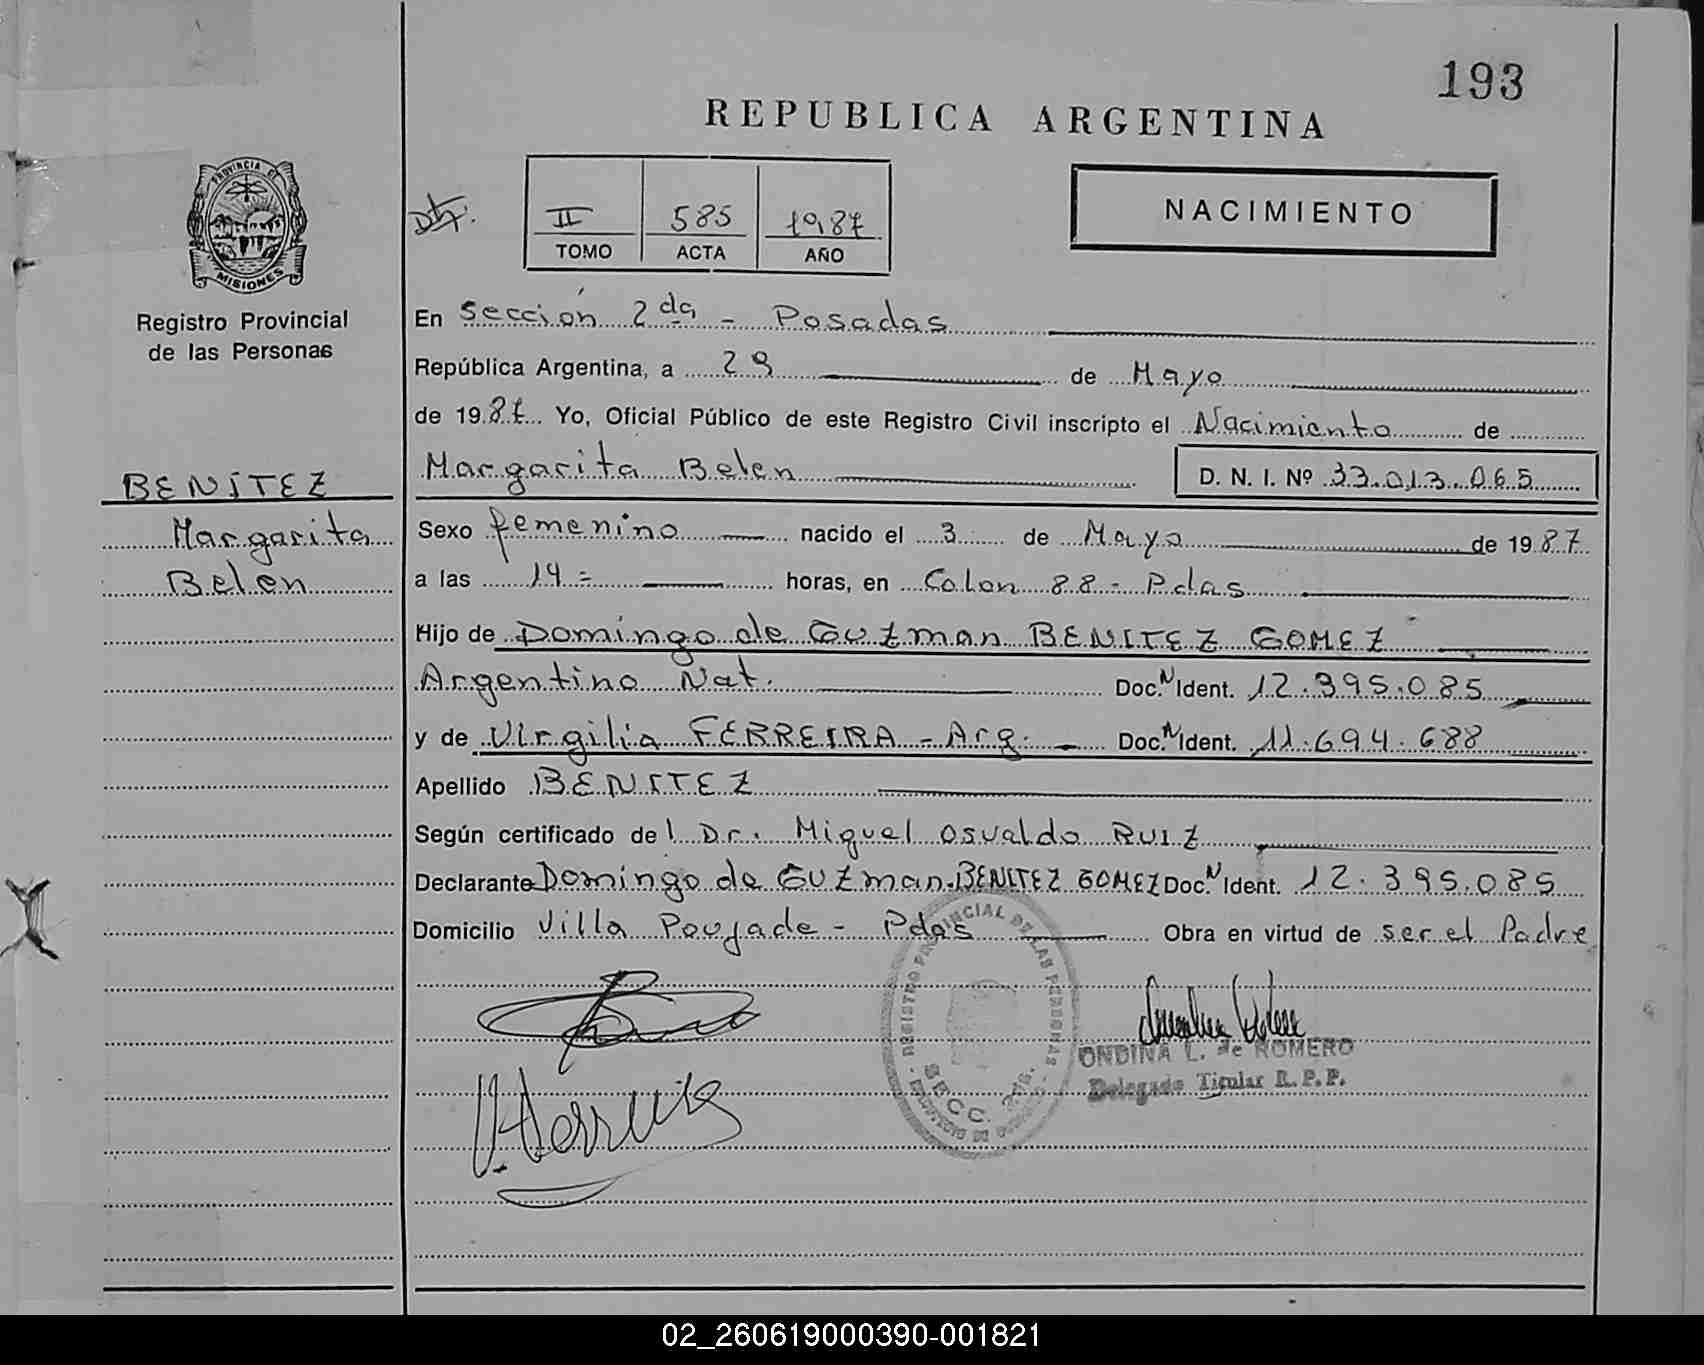 193
REPUBLICA ARGENTINA
PROVINCIA DE
MISIONES
Registro Provincial
de las Personas
II 585 1987
TOMO ACTA AÑO
NACIMIENTO
En Sección 2da - Posadas
República Argentina, a 29 de Mayo
de 1987 Yo, Oficial Público de este Registro Civil inscripto el Nacimiento de
Margarita Belen D. N. I. Nº 33.013.065
BENÍTEZ
Margarita
Belen
Sexo femenino nacido el 3 de Mayo de 1987
a las 14 = horas, en Colon 88 - Pdas
Hijo de Domingo de Guzman BENITEZ GOMEZ
Argentino Nat. Doc. N Ident. 12.395.085
y de Virgilia FERREIRA - Arg. Doc. N Ident. 11.694.688
Apellido BENITEZ
Según certificado del Dr. Miguel Osvaldo RUIZ
Declarante Domingo de Guzman BENITEZ GOMEZ Doc. N Ident. 12.395.085
Domicilio Villa Poujade - Pdas Obra en virtud de ser el Padre
REGISTRO PROVINCIAL DE LAS PERSONAS
SECC. 2da.
ONDINA L. de ROMERO
Delegado Titular R. P. P.
V. Ferreira
02_260619000390-001821